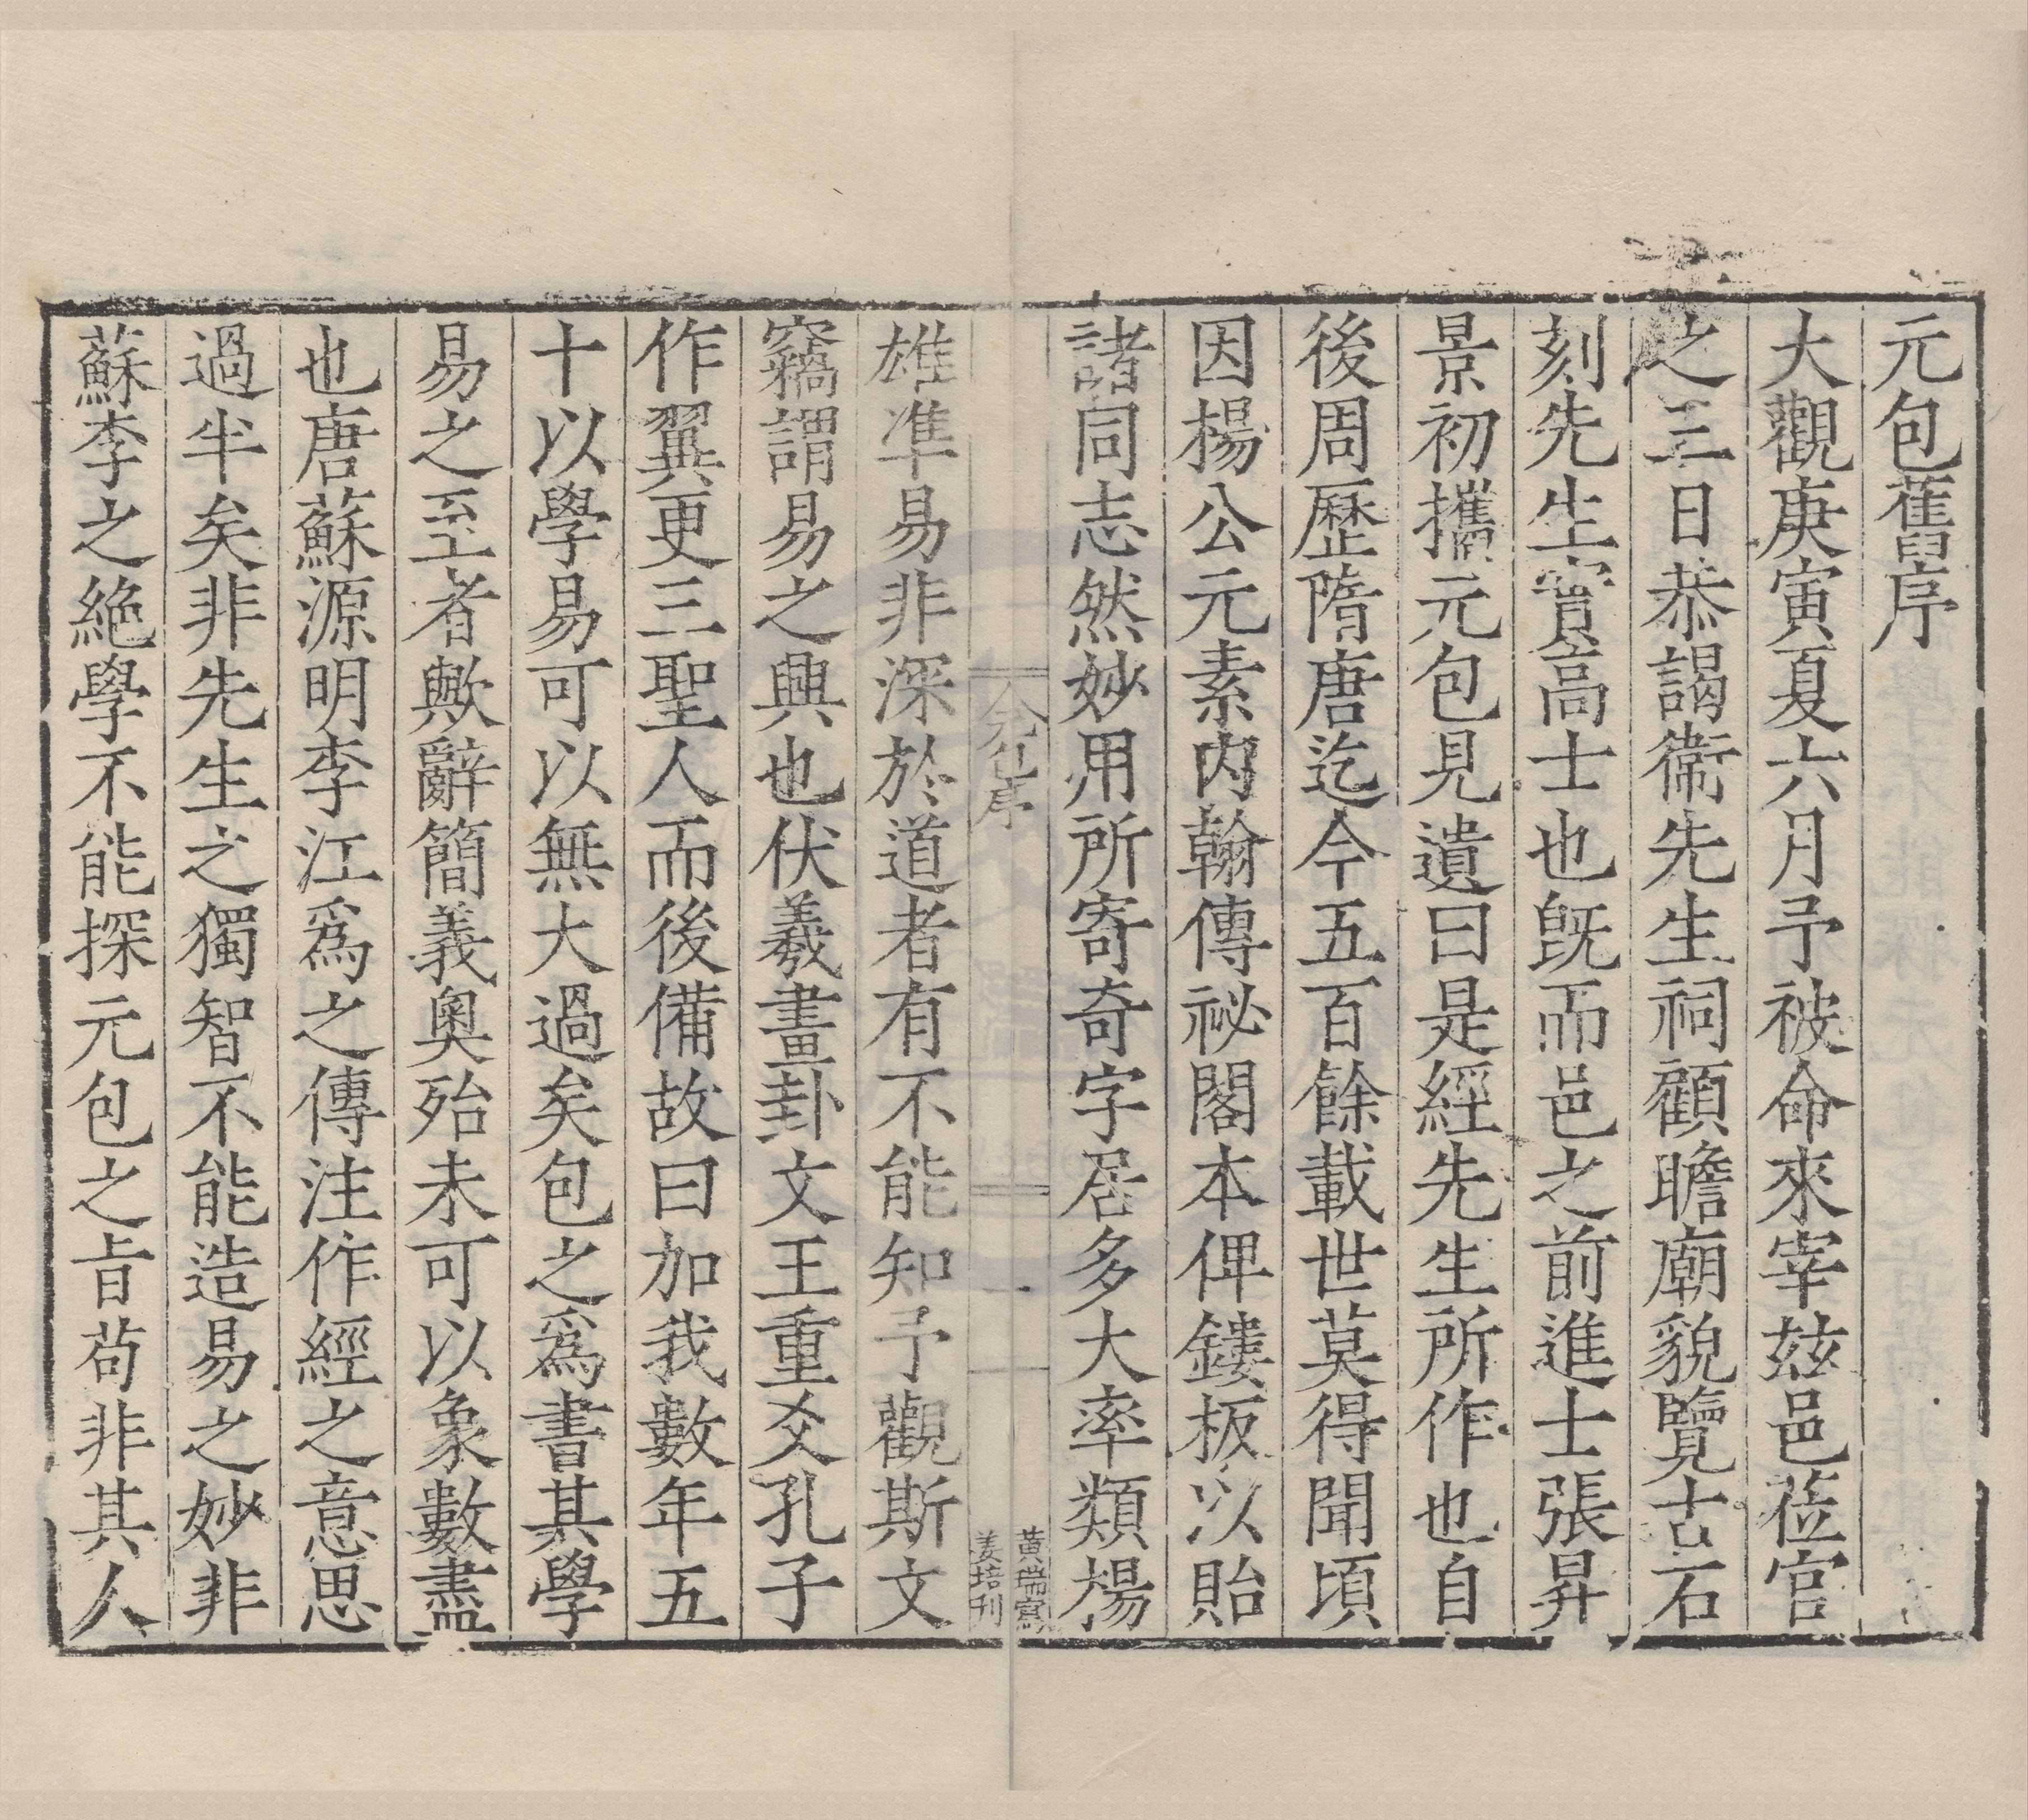 元包舊序
大觀庚寅夏六月予被命來宰兹邑莅官
之三日恭謁衛先生祠顧瞻廟貌覽古石
刻先生實高士也旣而邑之前進士張昇
景初攜元包見遺曰是經先生所作也自
後周歷隋唐迄今五百餘載世莫得聞頃
因楊公元素内翰傳祕閣本俾鏤板以貽
諸同志然妙用所寄奇字居多大率類揚
黃瑞寫
姜培刊
雄準易非深於道者有不能知予觀斯文
竊謂易之興也伏羲畫卦文王重爻孔子
作翼更三聖人而後備故曰加我數年五
十以學易可以無大過矣包之爲書其學
易之至者歟辭簡義奧殆未可以象數盡
也唐蘇源明李江爲之傳注作經之意思
過半矣非先生之獨智不能造易之妙非
蘇李之絶學不能探元包之旨苟非其人